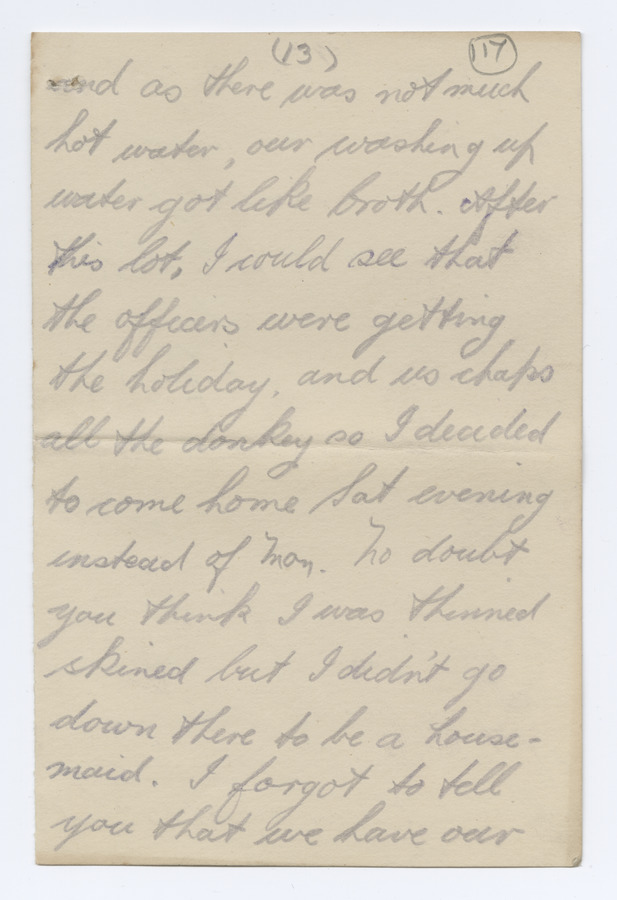 (13) 117
and as there was not much
hot water, our washing up
water got like broth. After
this lot, I could see that
the officers were getting
the holiday, and us chaps
all the donkey so I decided
to come home Sat evening
instead of Mon. No doubt
you think I was thinned
skined but I didn't go
down there to be a house-
maid. I forgot to tell
you that we have our